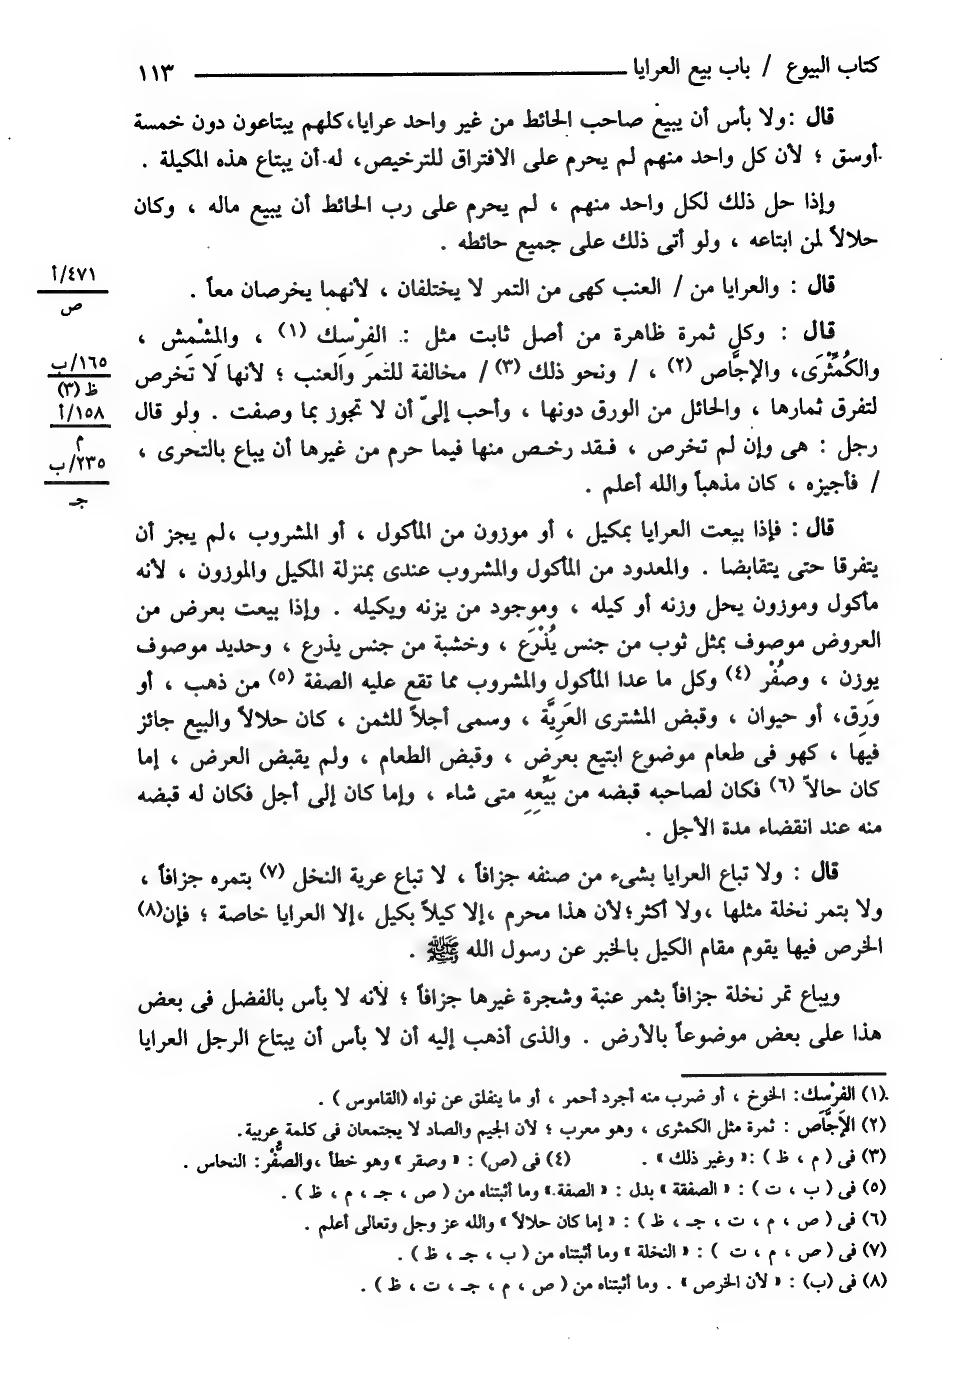 كتاب البيوع / باب بيع العرايا ١١٣
قال : ولا بأس أن يبيع صاحب الحائط من غير واحد عرايا، كلهم يبتاعون دون خمسة
أوسق ؛ لأن كل واحد منهم لم يحرم على الافتراق للترخيص، له أن يبتاع هذه المكيلة .
وإذا حل ذلك لكل واحد منهم ، لم يحرم على رب الحائط أن يبيع ماله ، وكان
حلالاً لمن ابتاعه ، ولو أتى ذلك على جميع حائطه .
قال : والعرايا من / العنب كهى من التمر لا يختلفان ، لأنهما يخرصان معاً .
٤٧١/أ
ص
قال : وكل ثمرة ظاهرة من أصل ثابت مثل : الفِرْسِك (١) ، والمشْمِش ،
والكُمَّثْرَى، والإجَّاص (٢) ، / ونحو ذلك (٣) / مخالفة للتمر والعنب ؛ لأنها لا تخرص
١٦٥/ب
ظ (٣)
لتفرق ثمارها ، والحائل من الورق دونها ، وأحب إلىّ أن لا تجوز بما وصفت . ولو قال
١٥٨/أ
م
رجل : هى وإن لم تخرص ، فقد رخص منها فيما حرم من غيرها أن يباع بالتحرى ،
٢٣٥/ب
جـ
/ فأجيزه ، كان مذهباً والله أعلم .
قال : فإذا بيعت العرايا بمكيل ، أو موزون من المأكول ، أو المشروب ، لم يجز أن
يتفرقا حتى يتقابضا . والمعدود من المأكول والمشروب عندى بمنزلة المكيل والموزون ، لأنه
مأكول وموزون يحل وزنه أو كيله ، وموجود من يزنه ويكيله . وإذا بيعت بعرض من
العروض موصوف بمثل ثوب من جنس يُذْرَع ، وخشبة من جنس يذرع ، وحديد موصوف
يوزن ، وصُفْر (٤) وكل ما عدا المأكول والمشروب مما تقع عليه الصفة (٥) من ذهب ، أو
وَرِق، أو حيوان ، وقبض المشترى العَرِيَّة ، وسمى أجلاً للثمن ، كان حلالاً والبيع جائز
فيها ، كهو فى طعام موضوع ابتيع بعرض ، وقبض الطعام ، ولم يقبض العرض ، إما
كان حالاً (٦) فكان لصاحبه قبضه من بَيِّعِهِ متى شاء ، وإما كان إلى أجل فكان له قبضه
منه عند انقضاء مدة الأجل .
قال : ولا تباع العرايا بشىء من صنفه جزافاً ، لا تباع عرية النخل (٧) بتمره جزافاً ،
ولا بتمر نخلة مثلها ، ولا أكثر؛ لأن هذا محرم ، إلا كيلاً بكيل ، إلا العرايا خاصة ؛ فإن(٨)
الخرص فيها يقوم مقام الكيل بالخبر عن رسول الله ﷺ .
ويباع تمر نخلة جزافاً بثمر عنبة وشجرة غيرها جزافاً ؛ لأنه لا بأس بالفضل فى بعض
هذا على بعض موضوعاً بالأرض . والذى أذهب إليه أن لا بأس أن يبتاع الرجل العرايا
(١) الفِرْسِك: الخوخ ، أو ضرب منه أجرد أحمر ، أو ما ينفلق عن نواه (القاموس ) .
(٢) الإجَّاص : ثمرة مثل الكمثرى ، وهو معرب ؛ لأن الجيم والصاد لا يجتمعان فى كلمة عربية.
(٣) فى ( م ، ظ ) : « وغير ذلك » . (٤) فى (ص) : « وصقر » وهو خطأ ، والصُّفْر: النحاس .
(٥) فى ( ب ، ت ) : « الصفقة » بدل : « الصفة » وما أثبتناه من ( ص ، جـ ، م ، ظ ) .
(٦) فى ( ص ، م ، ت ، جـ ، ظ ) : « إما كان حلالاً » والله عز وجل وتعالى أعلم .
(٧) فى ( ص ، م ، ت ) : « النخلة » وما أثبتناه من ( ب ، جـ ، ظ ) .
(٨) فى (ب) : « لأن الخرص » . وما أثبتناه من ( ص ، م ، جـ ، ت ، ظ ) .